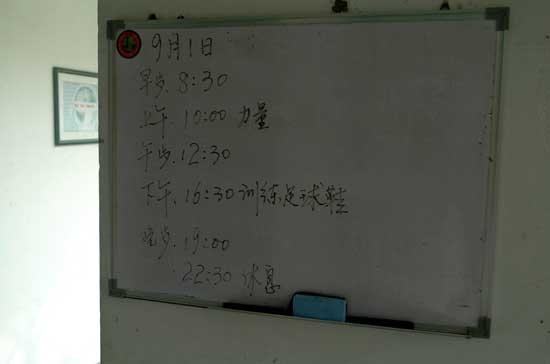 9月1日
早步. 8:30
上午. 10:00 力量
午步. 12:30
下午. 16:30 训练足球鞋
晚步. 19:00
22:30 休息